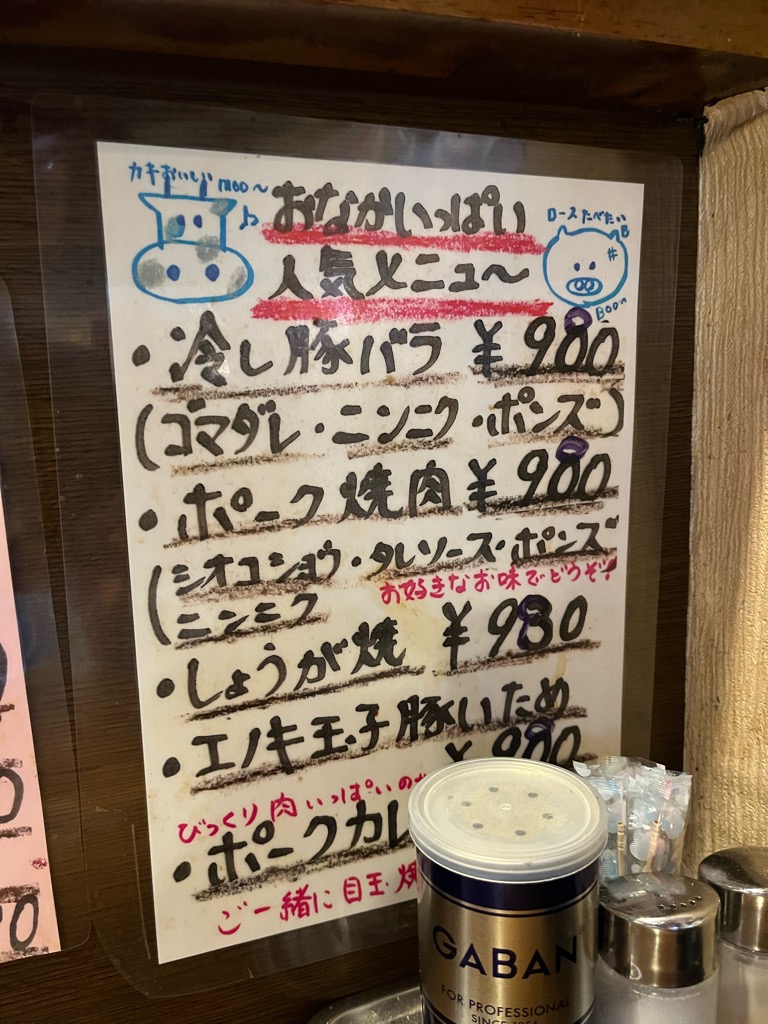 カキおいしい moo〜
ロースたべたい
Boo〜
おなかいっぱい
人気メニュ〜
・冷し豚バラ ¥980
(ゴマダレ・ニンニク・ポンズ)
・ポーク焼肉 ¥980
(シオコショウ・タレソース・ポンズ
ニンニク
お好きなお味でどうぞ!
・しょうが焼 ¥980
・エノキ玉子豚いため
¥980
びっくり肉いっぱいの
・ポークカレ
ご一緒に目玉焼
GABAN
FOR PROFESSIONAL
SINCE